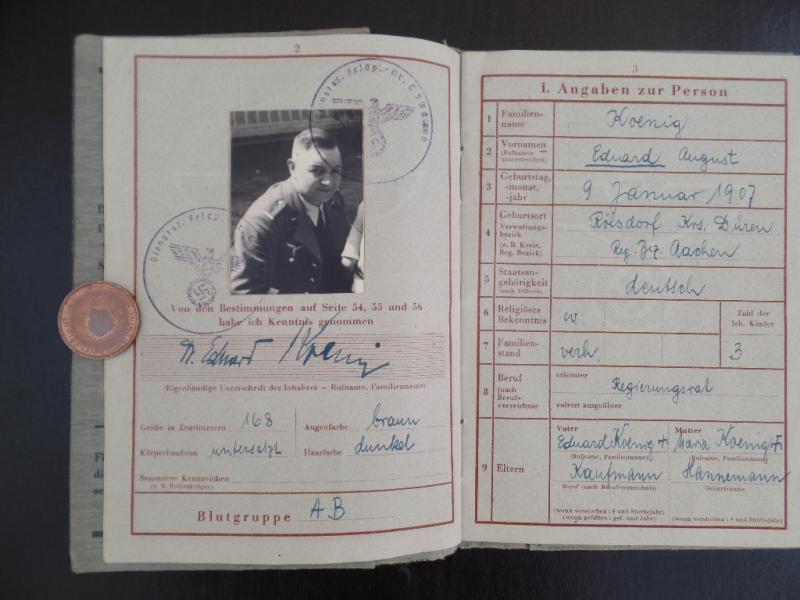 2
Dienstst. Feldp.-Nr.
Dienstst. Feldp.
Von den Bestimmungen auf Seite 54, 55 und 56
habe ich Kenntnis genommen
Eduard Koenig
(Eigenhändige Unterschrift des Inhabers – Rufname, Familienname)
Größe in Zentimetern 168
Augenfarbe braun
Körperbauform untersetzt
Haarfarbe dunkel
Besondere Kennzeichen
(z. B. Brillenträger)
Blutgruppe AB
3
I. Angaben zur Person
1 Familien-
name
Koenig
2 Vornamen
(Rufnamen
unterstreichen)
Eduard August
3 Geburtstag,
-monat,
-jahr
9. Januar 1907
4 Geburtsort
Verwaltungs-
bezirk
(z. B. Kreis,
Reg. Bezirk)
Krs. Düren
Reg. Bez. Aachen
5 Staatsan-
gehörigkeit
deutsch
6 Religiöses
Bekenntnis
ev.
Zahl der
leb. Kinder
7 Familien-
stand
verh.
3
8 Beruf
(nach
Berufs-
verzeichnis)
erlernter
Regierungsrat
zuletzt ausgeübter
9 Eltern
Vater
Eduard Koenig †
(Rufname, Familienname)
Kaufmann
Beruf (nach Berufsverzeichnis)
(wenn verstorben: † und Sterbejahr)
(wenn gefallen: gef. und Jahr)
Mutter
Maria Koenig †
(Rufname, Familienname)
Hannemann
Geburtsname
(wenn verstorben: † und Sterbejahr)